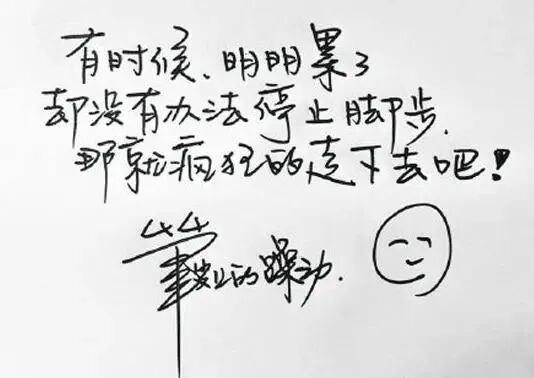 有时候、明明累了
却没有办法停止脚步.
那就疯狂的走下去吧！
的躁动.